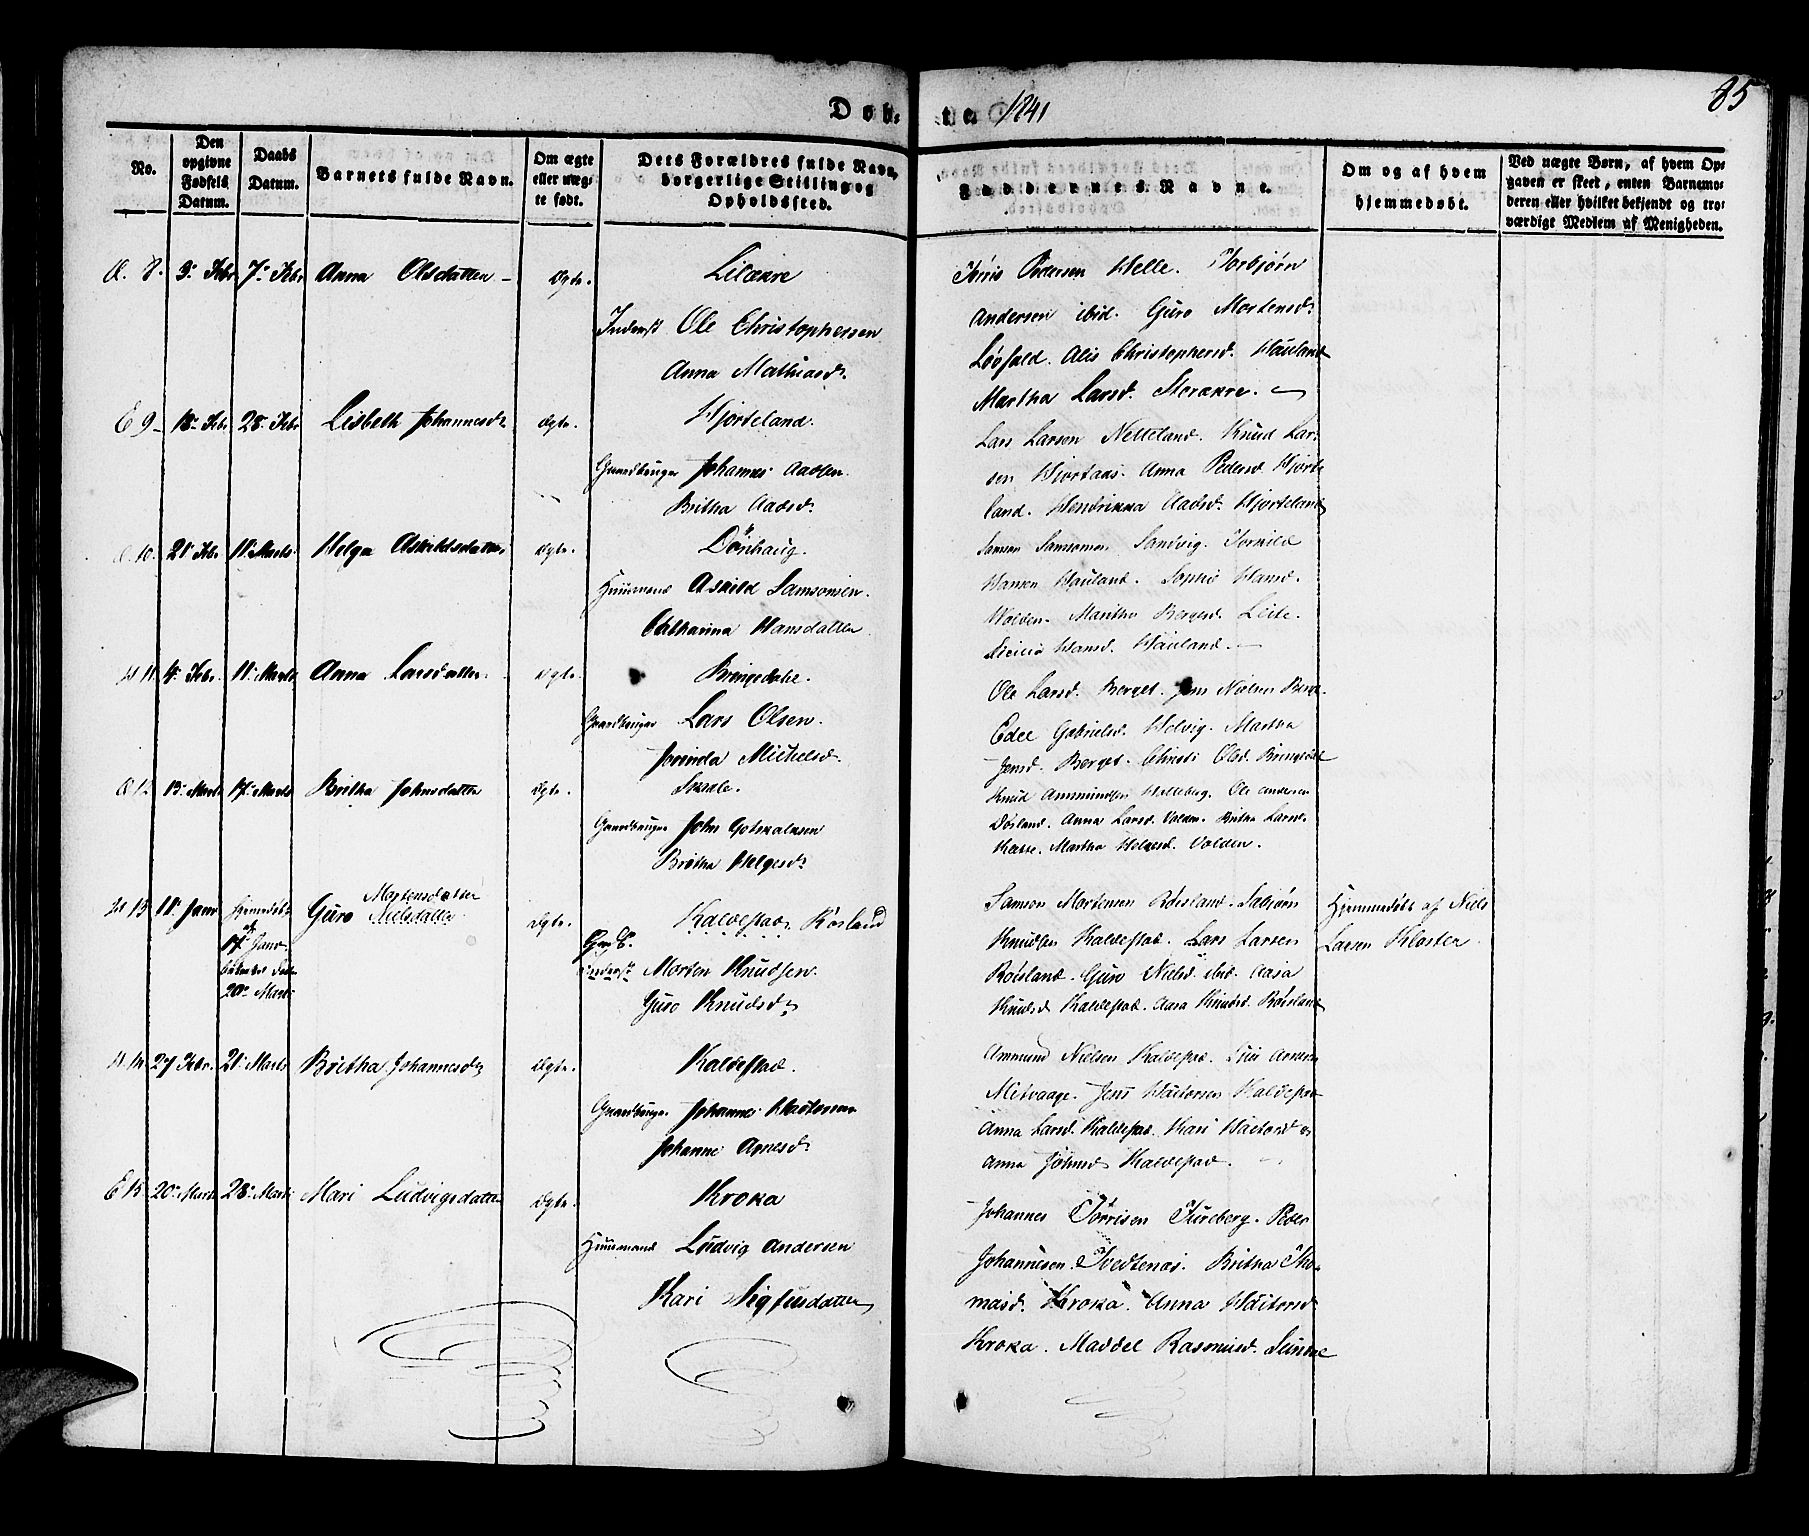 Døb- te. 1841
85
No.
Den opgivne Fødsels Datum.
Daabs Datum.
Barnets fulde Navn.
Om ægte eller uægte født.
Dets Forældres fulde Navn, borgerlige Stilling og Opholdssted.
Faddernes Navne.
Om og af hvem hjemmedøbt.
Ved uægte Børn, af hvem Opgaven er skeet, enten Barnemoderen eller hvilket bekjendt og troværdigt Medlem af Menigheden.
8. 3. Febr 7. Febr Anna Olsdatter - Ægte. Lilækre
Inderst Ole Christophersen
Anna Mathiasd.
Pedersen Helle. Torbjørn
Andersen ibid. Guro Mortensd.
Løvfald. Alis Christophersd. Hauland
Martha Larsd. Storækre.
E 9 18. Febr 28. Febr Lisbeth Johannesd. Ægte. Hjorteland.
Gaardbruger Johannes Aadsen.
Britha Aadsd.
Lars Larsen Netteland. Knud Lar-
sen Hjortaas. Anna Pedersd. Hjorte
land. Hendrikka Aadsd. Hjorteland
10. 21. Febr. 11. Marts Helga Askildsdatter Ægte. Dønhaug.
Huusmand Askild Samsonsen.
Catharina Hansdatter
Samson Samsonsen Sandvig. Tornild
Hansen Hauland. Sophie Hansd.
Holven. Martha Bergesd. Leite.
Hansd. Hauland.
11. 4. Febr. 11. Marts Anna Larsdatter. Ægte. Bringedahl.
Gaardbruger Lars Olsen.
Michelsd.
Ole Larsd. Berget. Jens Nielsen Berge.
Edel Gabrielsd. Helvig. Martha
Jensd. Berget. Olsd. Bringedal
12 13. Marts 17. Marts Britha Johnsdatter Ægte. Skedle.
Gaardbruger John Gotskalksen
Britha Helgesd.
Knud Ammundsen Helleberg. Ole Andersen
Døsland. Anna Larsd. Volden. Britha Larsd.
Martha Helgesd. Volden.
13 11. Janr Hjemmedøbt af 17. Janr 20. Marts Guro Mortensdatter Nielsdatter Ægte. Kaldestad. Røsland
Morten Knudsen.
Guro Knudsd.
Samson Mortensen Røisland. Salbjørn
Knudsen Kaldestad. Lars Larsen
Røisland. Guro Nielsd. ibid. Aasa
Knudsd Kaldestad. Aasa Knudsd. Røisland
Hjemmedøbt af Niels
Larsen Kloster.
14. 27 Febr. 21. Marts Britha Johannesd. Ægte. Kaldestad.
Gaardbruger Johannes Haktorsen
Johanne Agnesd.
Ammund Nielsen Kaldestad.
Mitvaage. Jens Haktorsen Kaldestad
Anna Larsd. Kaldestad. Kari Haktorsd
Anna Johnsd Kaldestad.
E 15. 20. Marts 28. Marts Mari Ludvigsdatter Ægte. Kroka
Huusmand Ludvig Andersen
Kari Sigfusdatter
Johannes Tørrisen Fureberg. Peder
Johannesen Tvedtenas. Britha Tho-
masd. Kroka. Anna Haktorsd
Kroka. Maddel Rasmusd. Sundal